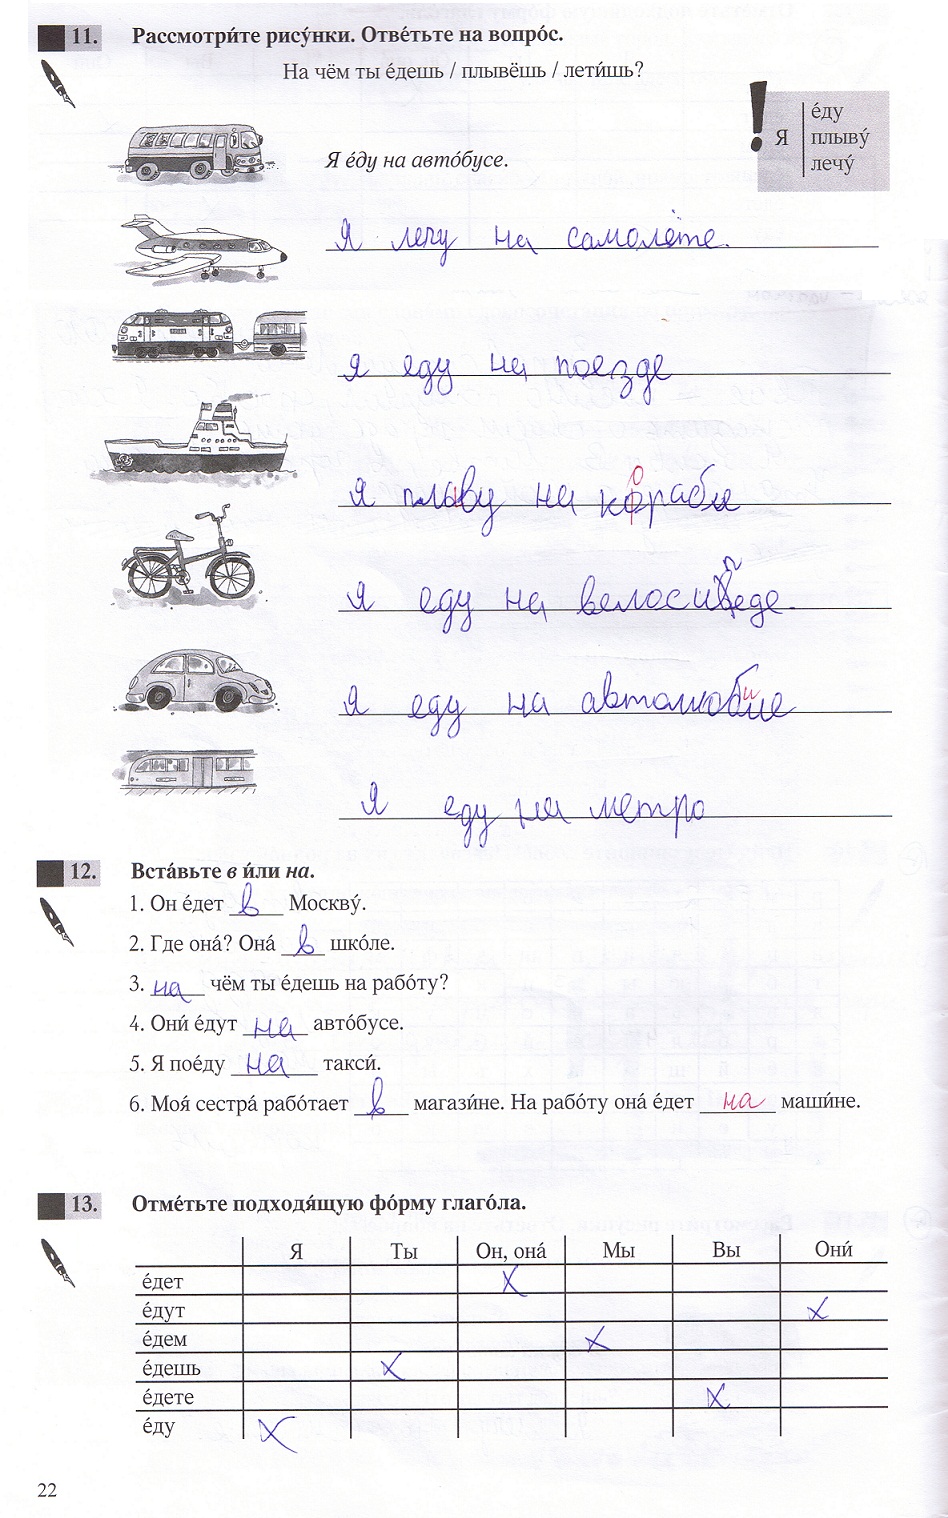 11. Рассмотри́те рису́нки. Отве́тьте на вопро́с.
На чём ты е́дешь / плывёшь / лети́шь?
! Я е́ду
плыву́
лечу́
Я е́ду на авто́бусе.
Я лечу на самолёте.
Я еду на поезде
Я плыву на корабле
Я еду на велосипеде.
Я еду на автомобиле
Я еду на метро
12. Вста́вьте в и́ли на.
1. Он е́дет в Москву́.
2. Где она́? Она́ в шко́ле.
3. на чём ты е́дешь на рабо́ту?
4. Они́ е́дут на авто́бусе.
5. Я пое́ду на такси́.
6. Моя́ сестра́ рабо́тает в магази́не. На рабо́ту она́ е́дет на маши́не.
13. Отме́тьте подходя́щую фо́рму глаго́ла.
Я Ты Он, она́ Мы Вы Они́
е́дет X
е́дут X
е́дем X
е́дешь X
е́дете X
е́ду X
22